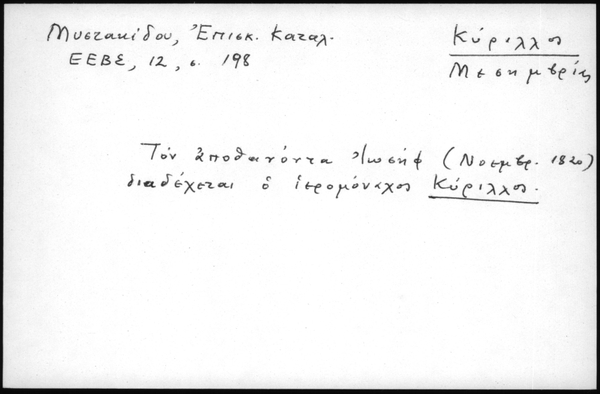 Μυστακίδου, Ἐπισκ. Καταλ.
ΕΕΒΣ, 12, σ. 198
Κύριλλος
Μεσημβρίας
Τὸν ἀποθανόντα Ἰωσὴφ (Νοεμβρ. 1820)
διαδέχεται ὁ ἱερομόναχος Κύριλλος.